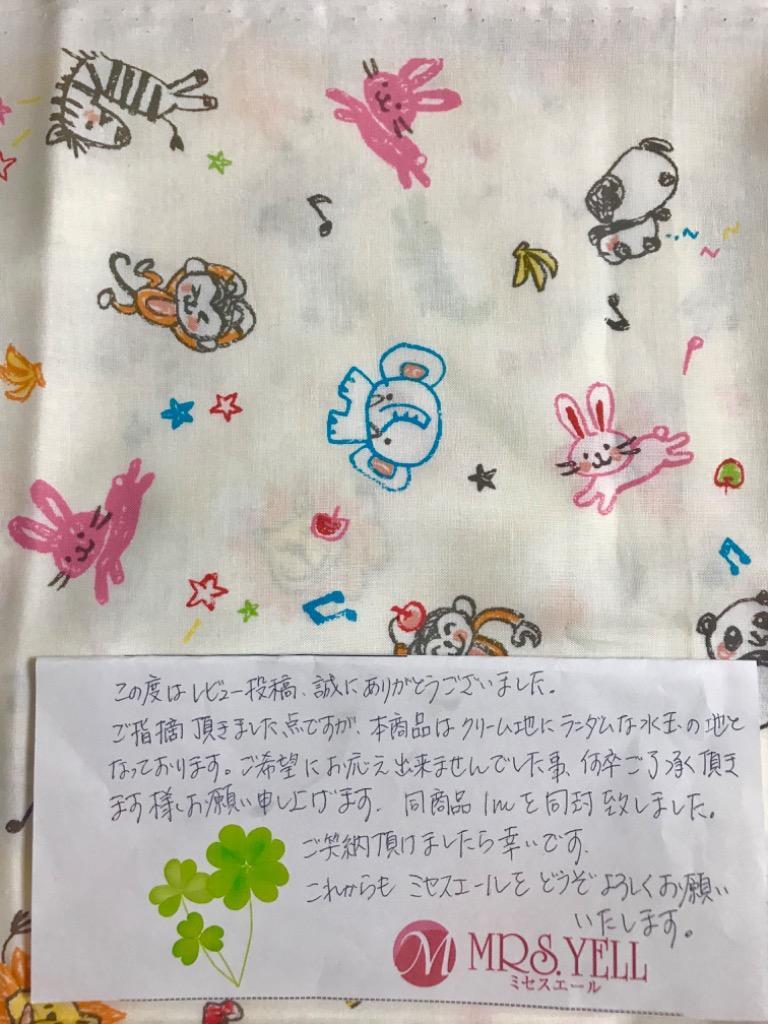 この度はレビュー投稿、誠にありがとうございました。
ご指摘頂きました点ですが、本商品はクリーム地にランダムな水玉の地と
なっております。ご希望にお応え出来ませんでした事、何卒ご了承頂き
ます様お願い申し上げます。同商品1mを同封致しました。
ご笑納頂けましたら幸いです。
これからもミセスエールをどうぞよろしくお願い
いたします。
M MRS.YELL
ミセスエール